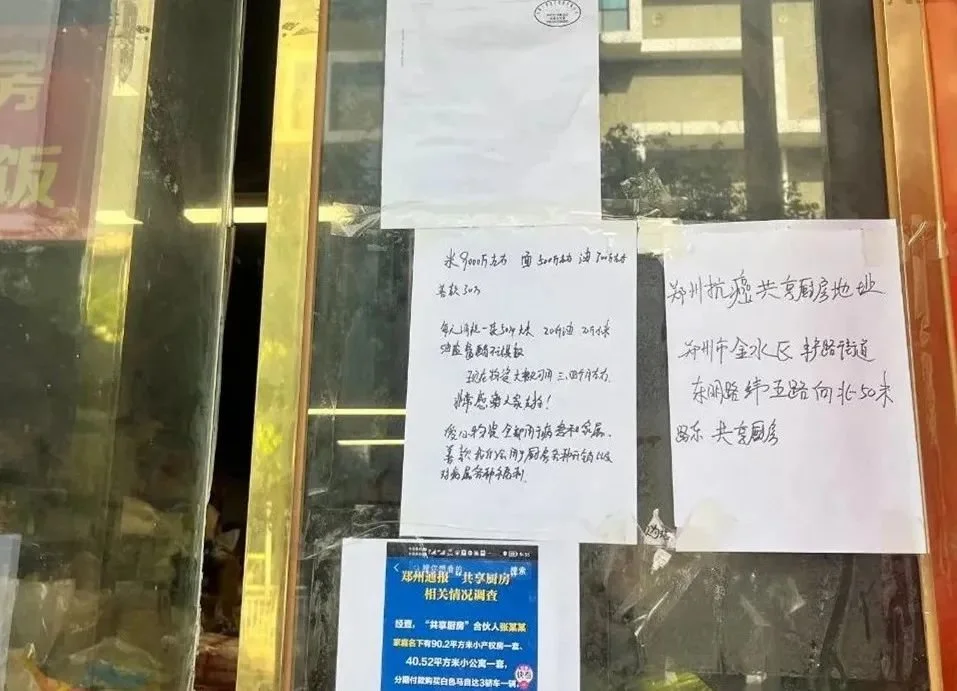 房
饭
米9000斤左右 面500斤左右 油300斤左右
善款30万
每人消耗一袋50斤大米 20斤油
油盐酱醋不接收
现在物资大概可用三、四个月左右
非常感谢大家支持!
爱心物资全部用于病患和家属.
善款我们会用于厨房各种开销以及
对病属各种福利.
郑州抗癌共享厨房地址
郑州市金水区 路街道
东明路纬五路向北50米
路东 共享厨房
搜索
郑州通报“共享厨房”
相关情况调查
经查,“共享厨房”合伙人张某某
家庭名下有90.2平方米小产权房一套、
40.52平方米小公寓一套,
分期付款购买白色马自达3轿车一辆,
快看